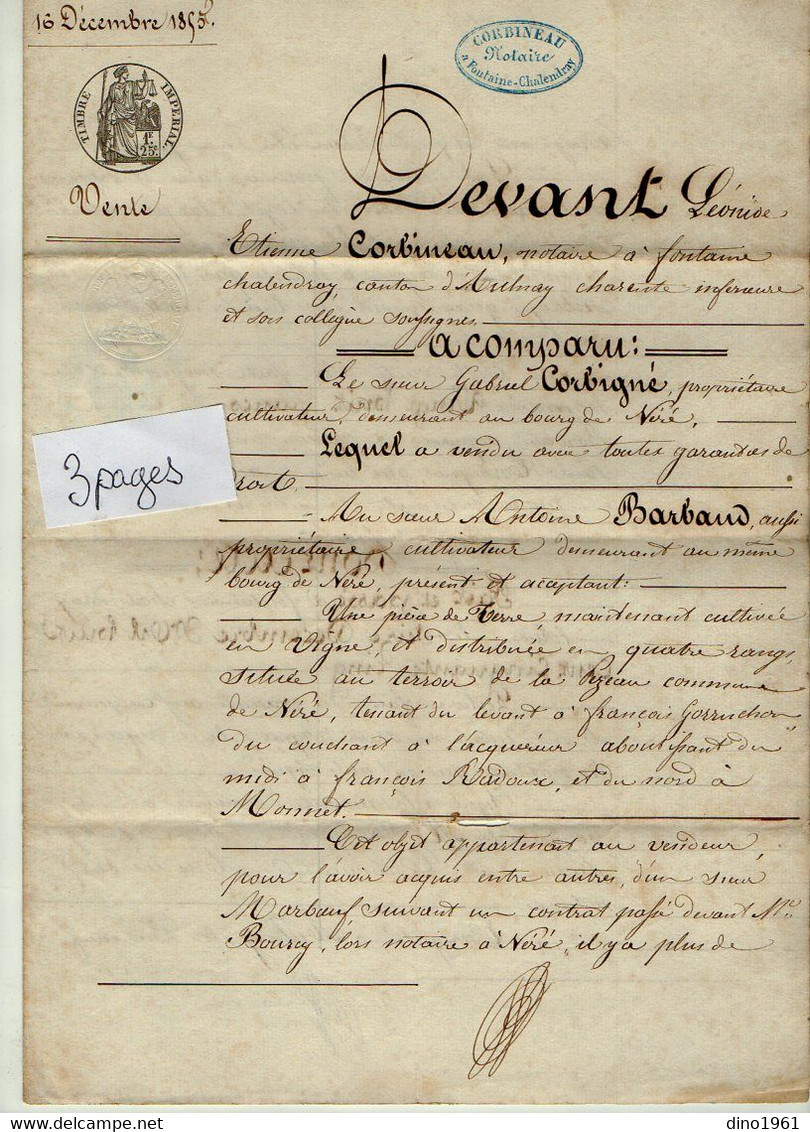 16 Décembre 185
CORBINEAU
Notaire
à Fontaine-Chalendray
TIMBRE IMPERIAL
1F
25c
Vente
Devant Léonide
Etienne Corbineau, notaire à fontaine
chalendray, canton d'Aulnay charente inférieure
et son collègue soussignés
a comparu:
Le sieur Gabriel Corbigné, propriétaire
cultivateur, demeurant au bourg de Néré,
Lequel a vendu avec toutes garanties de
droit.
Au sieur Antoine Barbaud, aussi
propriétaire cultivateur demeurant au même
bourg de Néré, présent et acceptant:
Une pièce de Terre, maintenant cultivée
en vigne, et distribuée en quatre rangs,
située au terroir de la commune
de Néré, tenant du levant à françois
du couchant à l'acquéreur aboutissant du
midi à françois Radoux, et du nord à
Monnet.
Cet objet appartenait au vendeur,
pour l'avoir acquis entre autres, d'un sieur
Marboeuf suivant un contrat passé devant Me.
Bourcy, lors notaire à Néré, il y a plus de
3 pages
dino1961